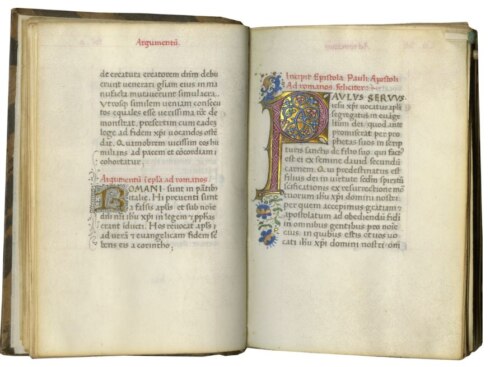 Argumentū.
de creatura creatorem dm̄ debu
erunt uenerari gl̄iam eius in ma
nufacta mutauerunt simulacra.
Vtrosqʒ similem ueniam consecu
tos equales esse uerissima rōe de
monstrat. presertim cum eadē
lege ad fidem xp̄i uocandos oste
dat. Quamobrem uicissim eos hu
milians ad pacem et cōcordiam
cohortatur.
Argumentū ī eplā ad romanos
ROMANI sunt in partibꝰ
italie. Hi preuenti sunt
a falsis aplīs et sub noīe
dn̄i nr̄i ihu xp̄i in legem et prophetas
erant inducti. Hos reuocat apls̄
ad uerā et euangelicam fidem scri
bens eis a corintho.
Ad romanos
Incipit Epistola Pauli Apostoli
Ad romanos. feliciter.
PAVLVS SERVVS
iesu xp̄i uocatus apls̄
segregatus in euange
lium dei. quod ante
promiserat per pro
phetas suos in scrip
turis sanctis de filio suo. qui fac
tus est ei ex semine dauid secundū
carnem. Qui predestinatus est
filius dei in uirtute scdm̄ spiritū
sc̄ificationis ex resurrectione mor
tuorum ihu xp̄i domini nostri
per quem accepimus gratiam et
apostolatum ad obediendū fidei
in omnibus gentibus pro noīe
eius. in quibus estis et uos uo
cati ihu xp̄i domini nostri om̄